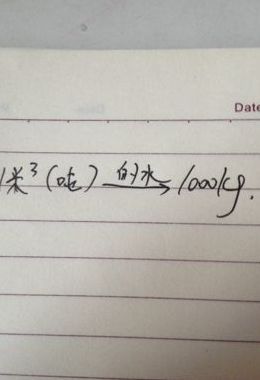 Date
1米³(哇) 的水→1000kg.